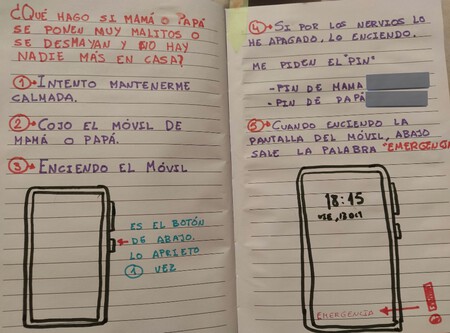 ¿QUÉ HAGO SI MAMÁ O PAPÁ
SE PONEN MUY MALITOS O
SE DESMAYAN Y NO HAY
NADIE MÁS EN CASA?
①• INTENTO MANTENERME
CALMADA.
②• COJO EL MÓVIL DE
MAMÁ O PAPÁ.
③• ENCIENDO EL MÓVIL
ES EL BOTÓN
DE ABAJO.
LO APRIETO
① VEZ
④• SI POR LOS NERVIOS LO
HE APAGADO, LO ENCIENDO.
ME PIDEN EL "PIN"
- PIN DE MAMA
- PIN DE PAPÁ
⑤• CUANDO ENCIENDO LA
PANTALLA DEL MÓVIL, ABAJO
SALE LA PALABRA "EMERGENCIA
18:45
VIE, 13 OCT
EMERGENCIA